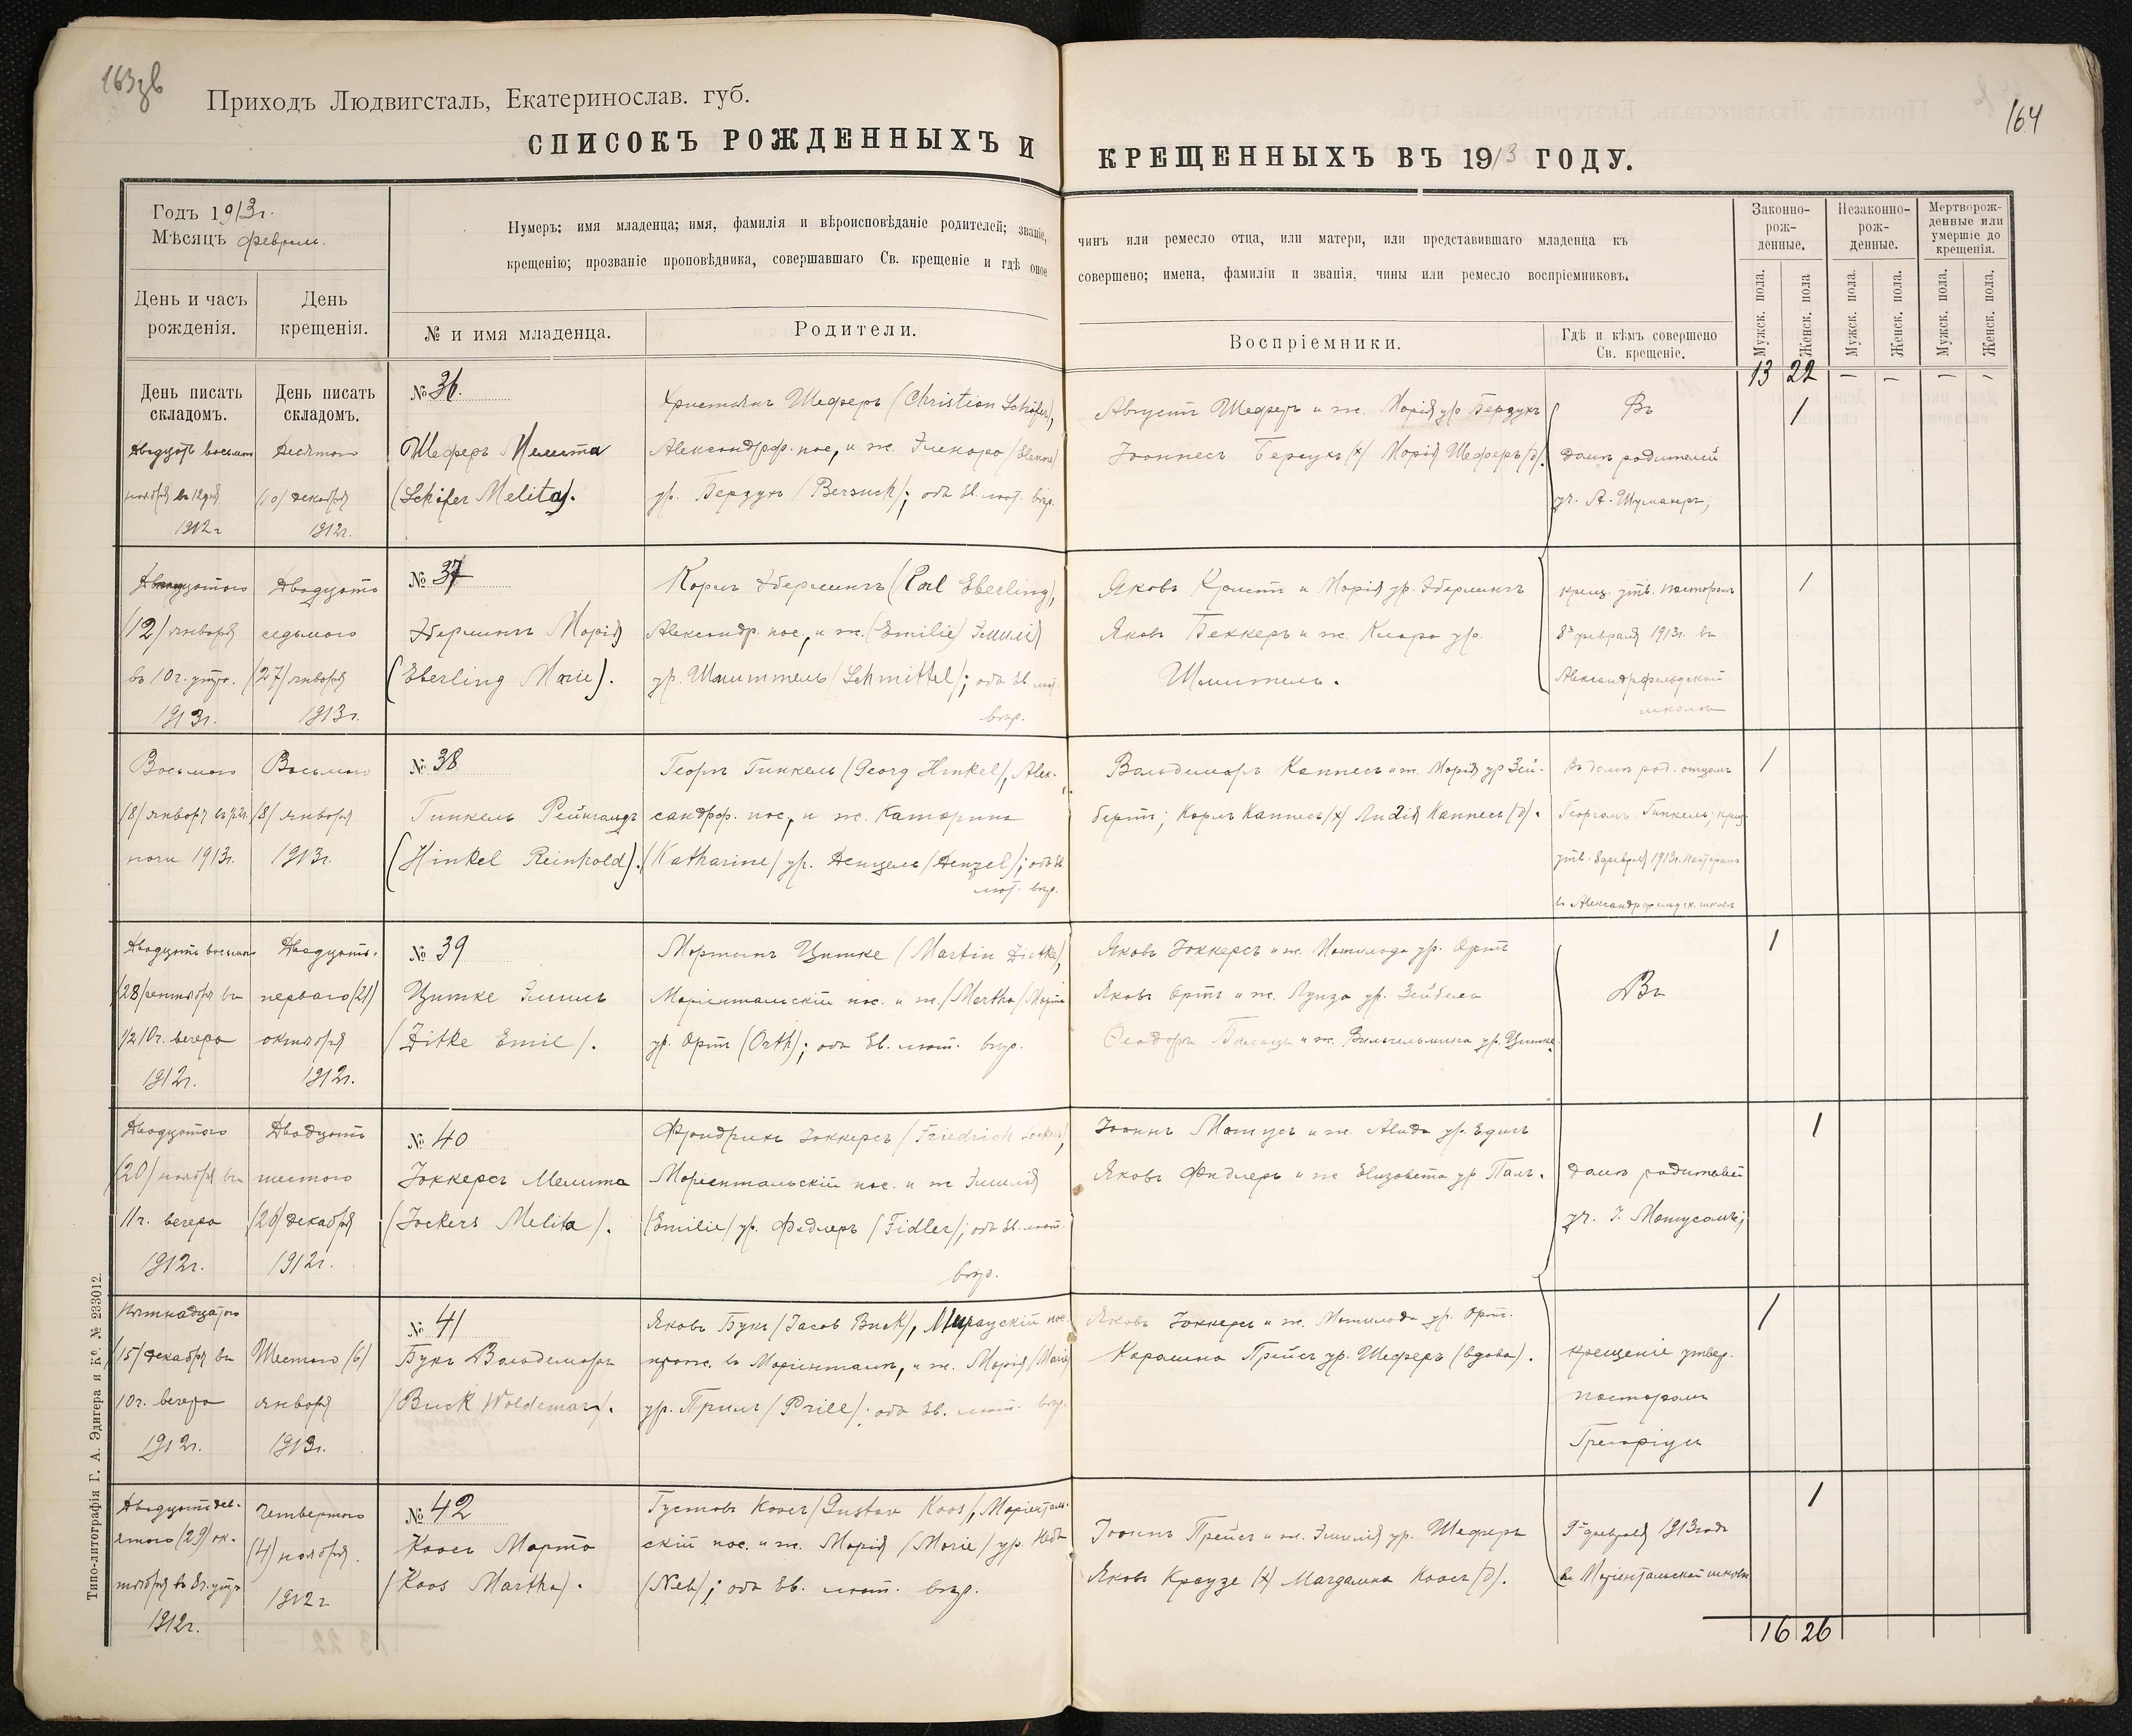 163 зв
Приходъ Людвигсталь, Екатеринослав. губ.
164
СПИСОКЪ РОЖДЕННЫХЪ И КРЕЩЕННЫХЪ ВЪ 1913 ГОДУ.
Годъ 1913г.
Мѣсяцъ февраль.
Нумеръ; имя младенца; имя, фамилія и вѣроисповѣданіе родителей; званіе, чинъ или ремесло отца, или матери, или представившаго младенца къ
крещенію; прозваніе проповѣдника, совершавшаго Св. крещеніе и гдѣ оное совершено; имена, фамиліи и званія, чины или ремесло воспріемниковъ.
Законно-
рож-
денные.
Незаконно-
рож-
денные.
Мертворож-
денные или
умершіе до
крещенія.
День и часъ
рожденія.
День
крещенія.
№ и имя младенца.
Родители.
Воспріемники.
Гдѣ и кѣмъ совершено
Св. крещеніе.
Мужск. пола.
Женск. пола
Мужск. пола.
Женск. пола.
Мужск. пола.
Женск. пола.
13 22 — — — —
День писать
складомъ.
Двадцать восьмого
ноября въ 12 дня
1912г
День писать
складомъ.
Десятаго
(10) декабря
1912г.
№ 36.
Шеферъ Мелита
(Schäfer Melita).
Христіанъ Шеферъ (Christian Schäfer),
Александрф. пос., и ж. Элеонора (Elenore)
ур. Берзухъ (Bersuch); оба Ев. лют. вѣр.
Августъ Шеферъ и ж. Марія ур. Берзухъ
Іоаннесъ Берзухъ (х) Марія Шеферъ (д).
Въ
домѣ родителей
уч. А. Шуманъ;
1
Двѣнадцатаго
(12) января
въ 10 ч. утра.
1913г.
Двадцать
седьмого
(27) января
1913г.
№ 37
Эберлингъ Марія
(Eberling Marie).
Карлъ Эберлингъ (Carl Eberling),
Александр. пос., и ж. (Emilie) Эмилія
ур. Шмиттель (Schmittel); оба Ев. лют.
вѣр.
Яковъ Кристъ и Марія ур. Эберлингъ
Яковъ Беккеръ и ж. Клара ур.
Шмитель.
крещ. утв. пасторомъ
8го февраля 1913г. въ
Александрфельдской
школѣ
1
Восьмого
(8) января
ночи 1913г.
Восьмого
(8) января
1913г.
№ 38
Гинкель Рейнгольдъ
(Hinkel Reinhold).
Георгъ Гинкель (Georg Hinkel), Алек-
сандрф. пос., и ж. Катарина
(Katharine) ур. Денцель (Denzel); оба Ев.
лют. вѣр.
Вольдемаръ Каннесъ и ж. Марія ур. Зей-
бертъ; Карлъ Каннесъ (х) Лидія Каннесъ (д).
въ домѣ род. отцомъ
Георгомъ Гинкель; крещ.
утв. 8 февраля 1913г. пасторомъ
въ Александрфельдск. школѣ
1
Двадцать восьмого
(28) сентября въ
1/2 10 ч. вечера
1912г.
Двадцать
перваго (21)
октября
1912г.
№ 39
Цитке Эмиль
(Zitke Emil).
Мартынъ Цитке (Martin Zietke),
Маріентальскій пос. и ж. (Martha) Марта
ур. Ортъ (Orth); оба Ев. лют. вѣр.
Яковъ Іоккерсъ и ж. Матильда ур. Ортъ
Яковъ Ортъ и ж. Луиза ур. Зейбель
и ж. Вильгельмина ур. Цитке.
Въ
1
Двадцатаго
(20) ноября въ
11 ч. вечера
1912г.
Двадцать
шестого
(26) декабря
1912г.
№ 40
Іоккерсъ Мелита
(Jockers Melita).
Фридрихъ Іоккерсъ (Friedrich Jockers),
Маріентальскій пос. и ж. Эмилія
(Emilie) ур. Фидлеръ (Fidler); оба Ев. лют.
вѣр.
Іоаннъ Матусъ и ж. Алида ур. Эдигъ
Яковъ Фидлеръ и ж. Елизавета ур. Паль.
домѣ родителей
уч. І. Матусомъ;
1
Пятнадцатаго
(15) декабря въ
10 ч. вечера
1912г.
Шестого (6)
января
1913г.
№ 41
Букъ Вольдемаръ
(Buck Woldemar).
Яковъ Букъ (Jacob Buck), Мираускій пос.
прож. въ Маріенталѣ, и ж. Марія (Marie)
ур. Приль (Prill); оба Ев. лют. вѣр.
Яковъ Іоккерсъ и ж. Матильда ур. Ортъ.
Каролина Прейсъ ур. Шеферъ (вдова).
крещеніе утвер.
пасторомъ
Грегоріусъ
1
Двадцать дев-
ятаго (29) ок-
тября въ 8 ч. утра
1912г.
Четвертого
(4) ноября.
1912г
№ 42
Коосъ Марта
(Koos Martha).
Густавъ Коосъ (Gustav Koos), Маріенталь-
скій пос. и ж. Марія (Marie) ур. Небъ
(Neb); оба Ев. лют. вѣр.
Іоаннъ Прейсъ и ж. Эмилія ур. Шеферъ
Яковъ Краузе (х) Магдалина Коосъ (д).
9го февраля 1913 года
въ Маріентальской школѣ
1
16 26
Типо-литографія Г. А. Эдигера и Ко. № 233012.